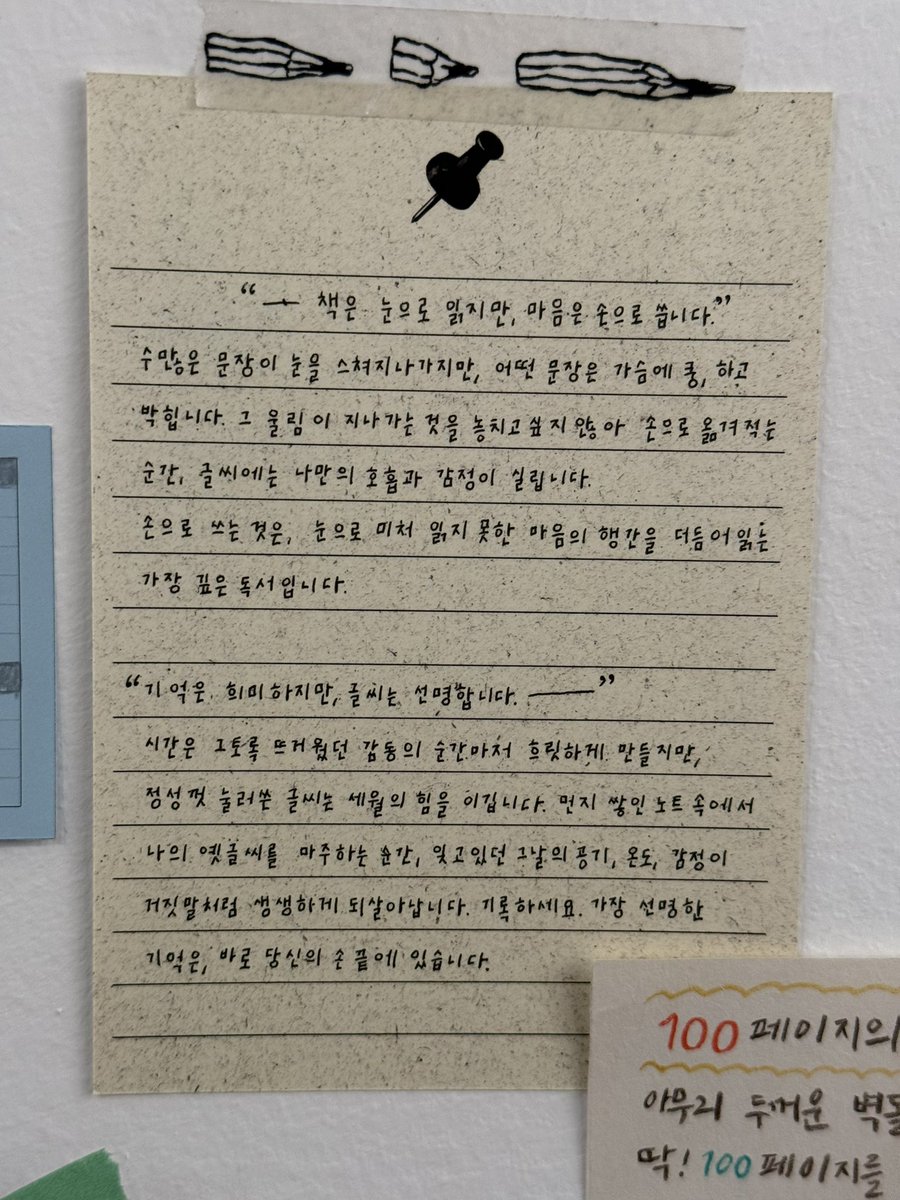 “— 책은 눈으로 읽지만, 마음은 손으로 씁니다.”
수많은 문장이 눈을 스쳐지나가지만, 어떤 문장은 가슴에 쿵, 하고
박힙니다. 그 울림이 지나가는 것을 놓치고 싶지 않아 손으로 옮겨적는
순간, 글씨에는 나만의 호흡과 감정이 실립니다.
손으로 쓰는 것은, 눈으로 미처 읽지 못한 마음의 행간을 더듬어 읽는
가장 깊은 독서입니다.
“기억은 희미하지만, 글씨는 선명합니다. —”
시간은 그토록 뜨거웠던 감동의 순간마저 흐릿하게 만들지만,
정성껏 눌러쓴 글씨는 세월의 힘을 이깁니다. 먼지 쌓인 노트 속에서
나의 옛글씨를 마주하는 순간, 잊고있던 그날의 공기, 온도, 감정이
거짓말처럼 생생하게 되살아납니다. 기록하세요. 가장 선명한
기억은, 바로 당신의 손 끝에 있습니다.
100 페이지의
아무리 두꺼운 벽돌
딱! 100 페이지를